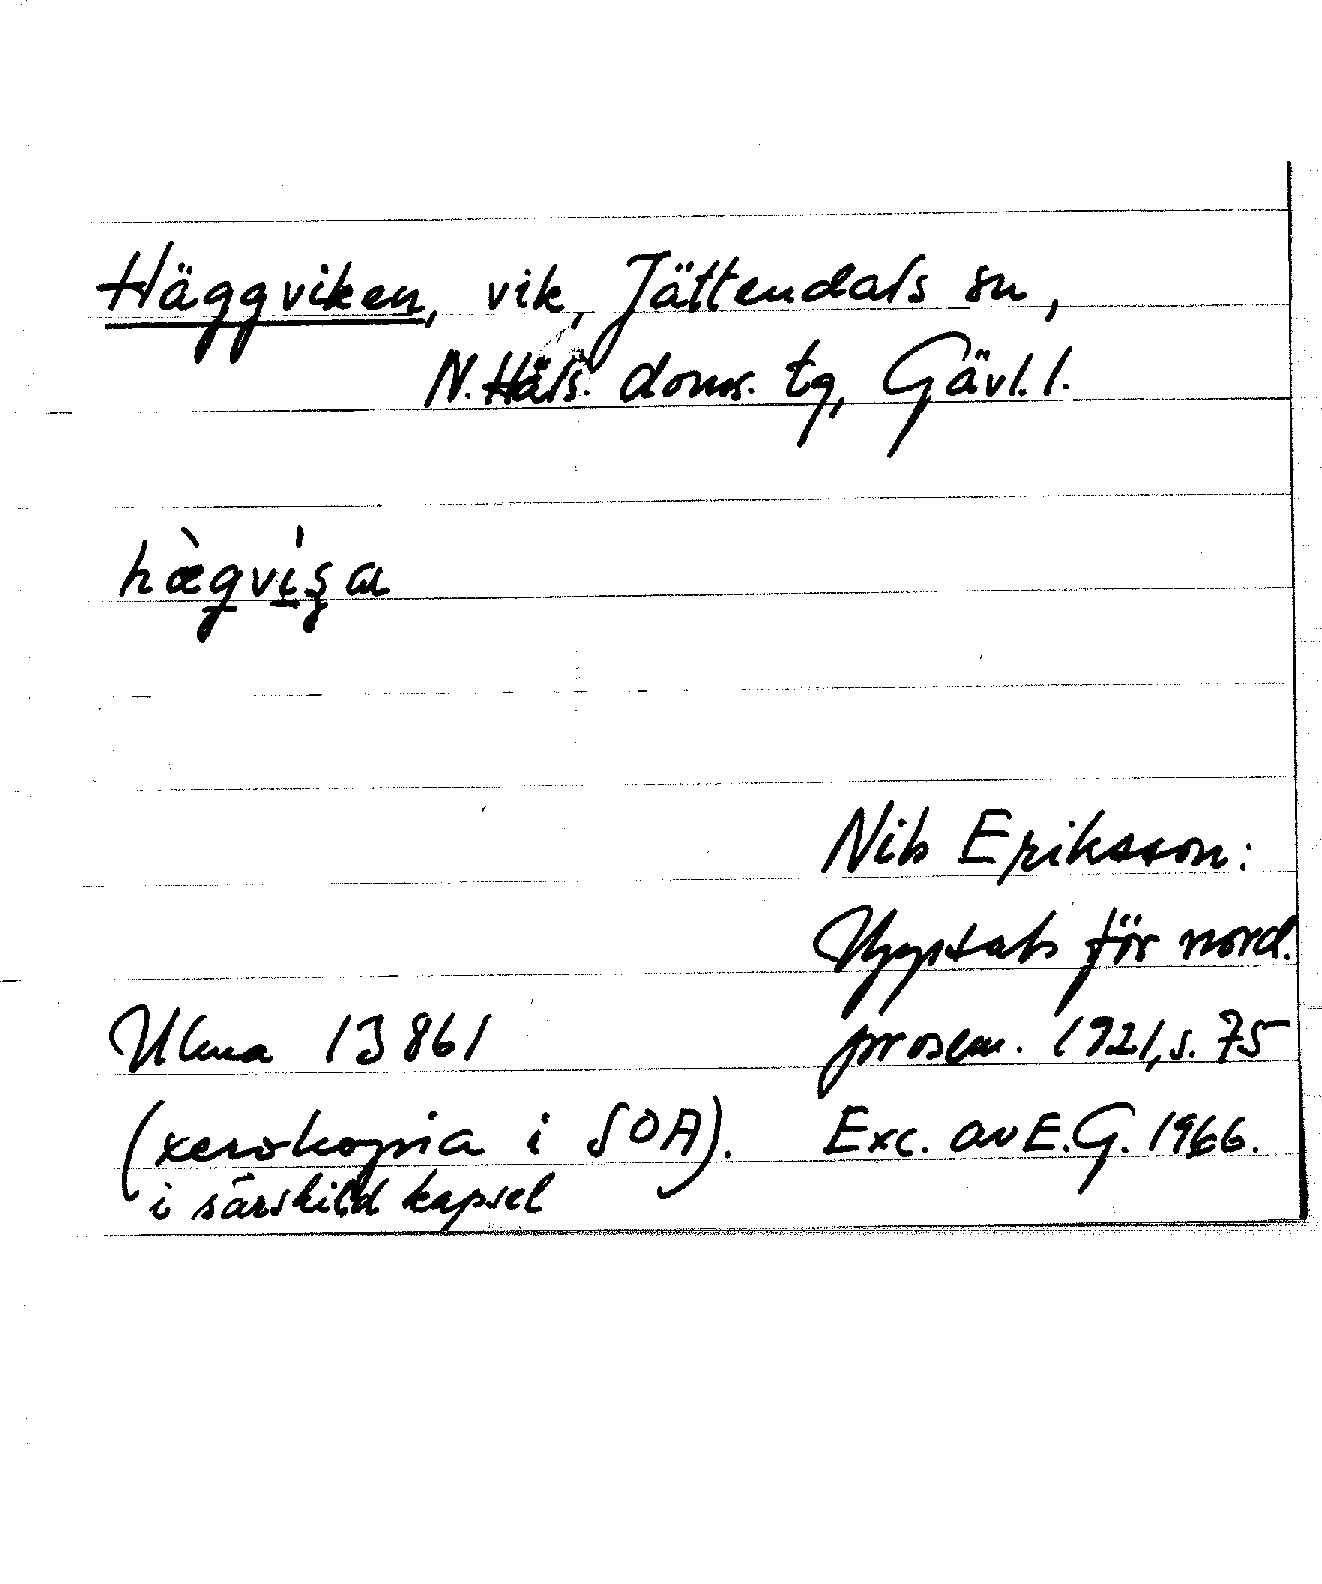 Häggviken, vik, Jättendals sn,
N. Häls. doms. tg, Gävl. l.
hæ̀gvi̍şa
Nils Eriksson:
Uppsats för nord.
Ulma 13861 prosem. 1921, s. 75
(xerokopia i SOA). Exc. av E.G. 1966.
i särskild kapsel